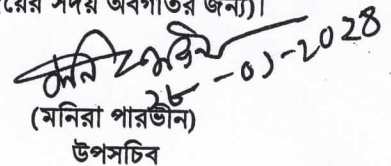 য়ের সদয় অবগতির জন্য)।
-০১-২০২৪
(মনিরা পারভীন)
উপসচিব